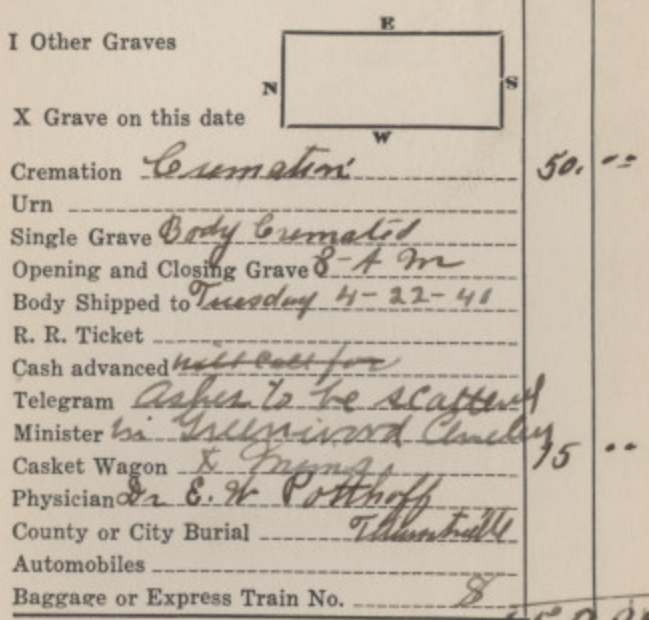 E
I Other Graves
N S
X Grave on this date
W
Cremation Cremation 50. --
Urn
Single Grave Body Cremated
Opening and Closing Grave 8 - A M
Body Shipped to Tuesday 4-22-41
R. R. Ticket
Cash advanced will call for
Telegram Ashes to be scattered
Minister in Greenwood Cemetery
Casket Wagon 15 --
Physician Dr E. W Potthoff
County or City Burial
Automobiles
Baggage or Express Train No.